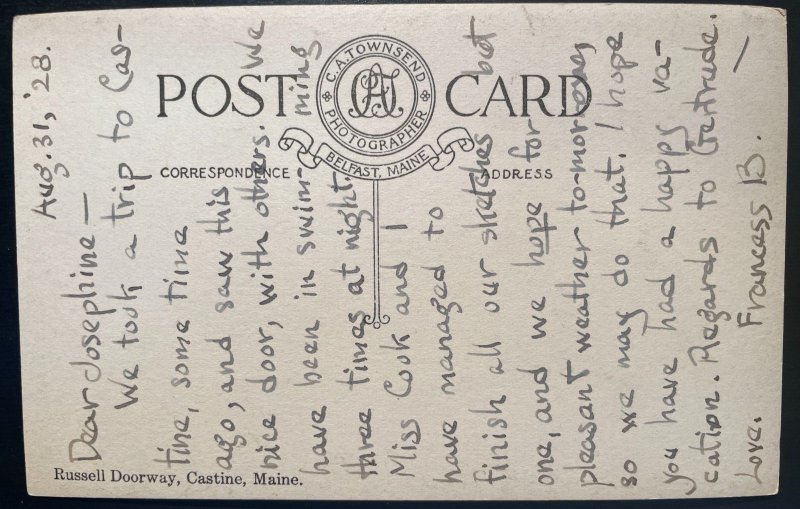 POST CARD
C.A. TOWNSEND
PHOTOGRAPHER
BELFAST, MAINE
CORRESPONDENCE
ADDRESS
Aug. 31, '28.
Dear Josephine —
We took a trip to Cas-
tine, some time
ago, and saw this
nice door, with others. We
have been in swim- ming
three times at night.
Miss Cook and I
have managed to
finish all our sketches but
one, and we hope for
pleasant weather to-morrow,
so we may do that. I hope
you have had a happy va-
cation. Regards to Gertrude.
Love. Francess B. —
Russell Doorway, Castine, Maine.